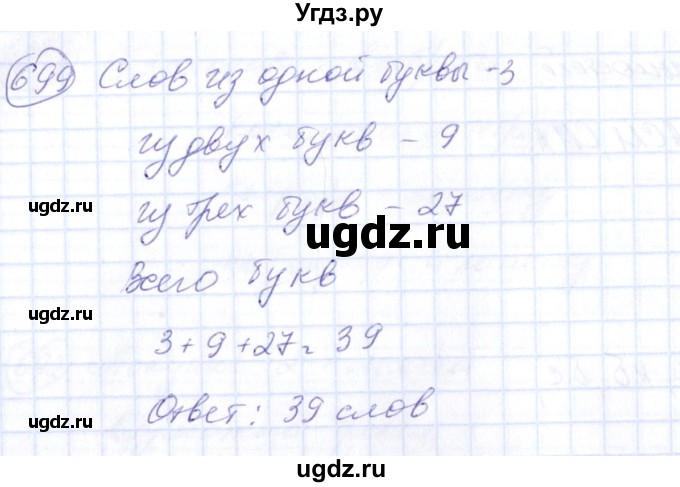 Угдз.ру
699 Слов из одной буквы - 3
из двух букв - 9
из трех букв - 27
ugdz.ru
ugdz.ru
ugdz.ru
Всего букв
ugdz.ru
ugdz.ru
3 + 9 + 27 = 39
Ответ: 39 слов
ugdz.ru
ugdz.ru
ugdz.ru